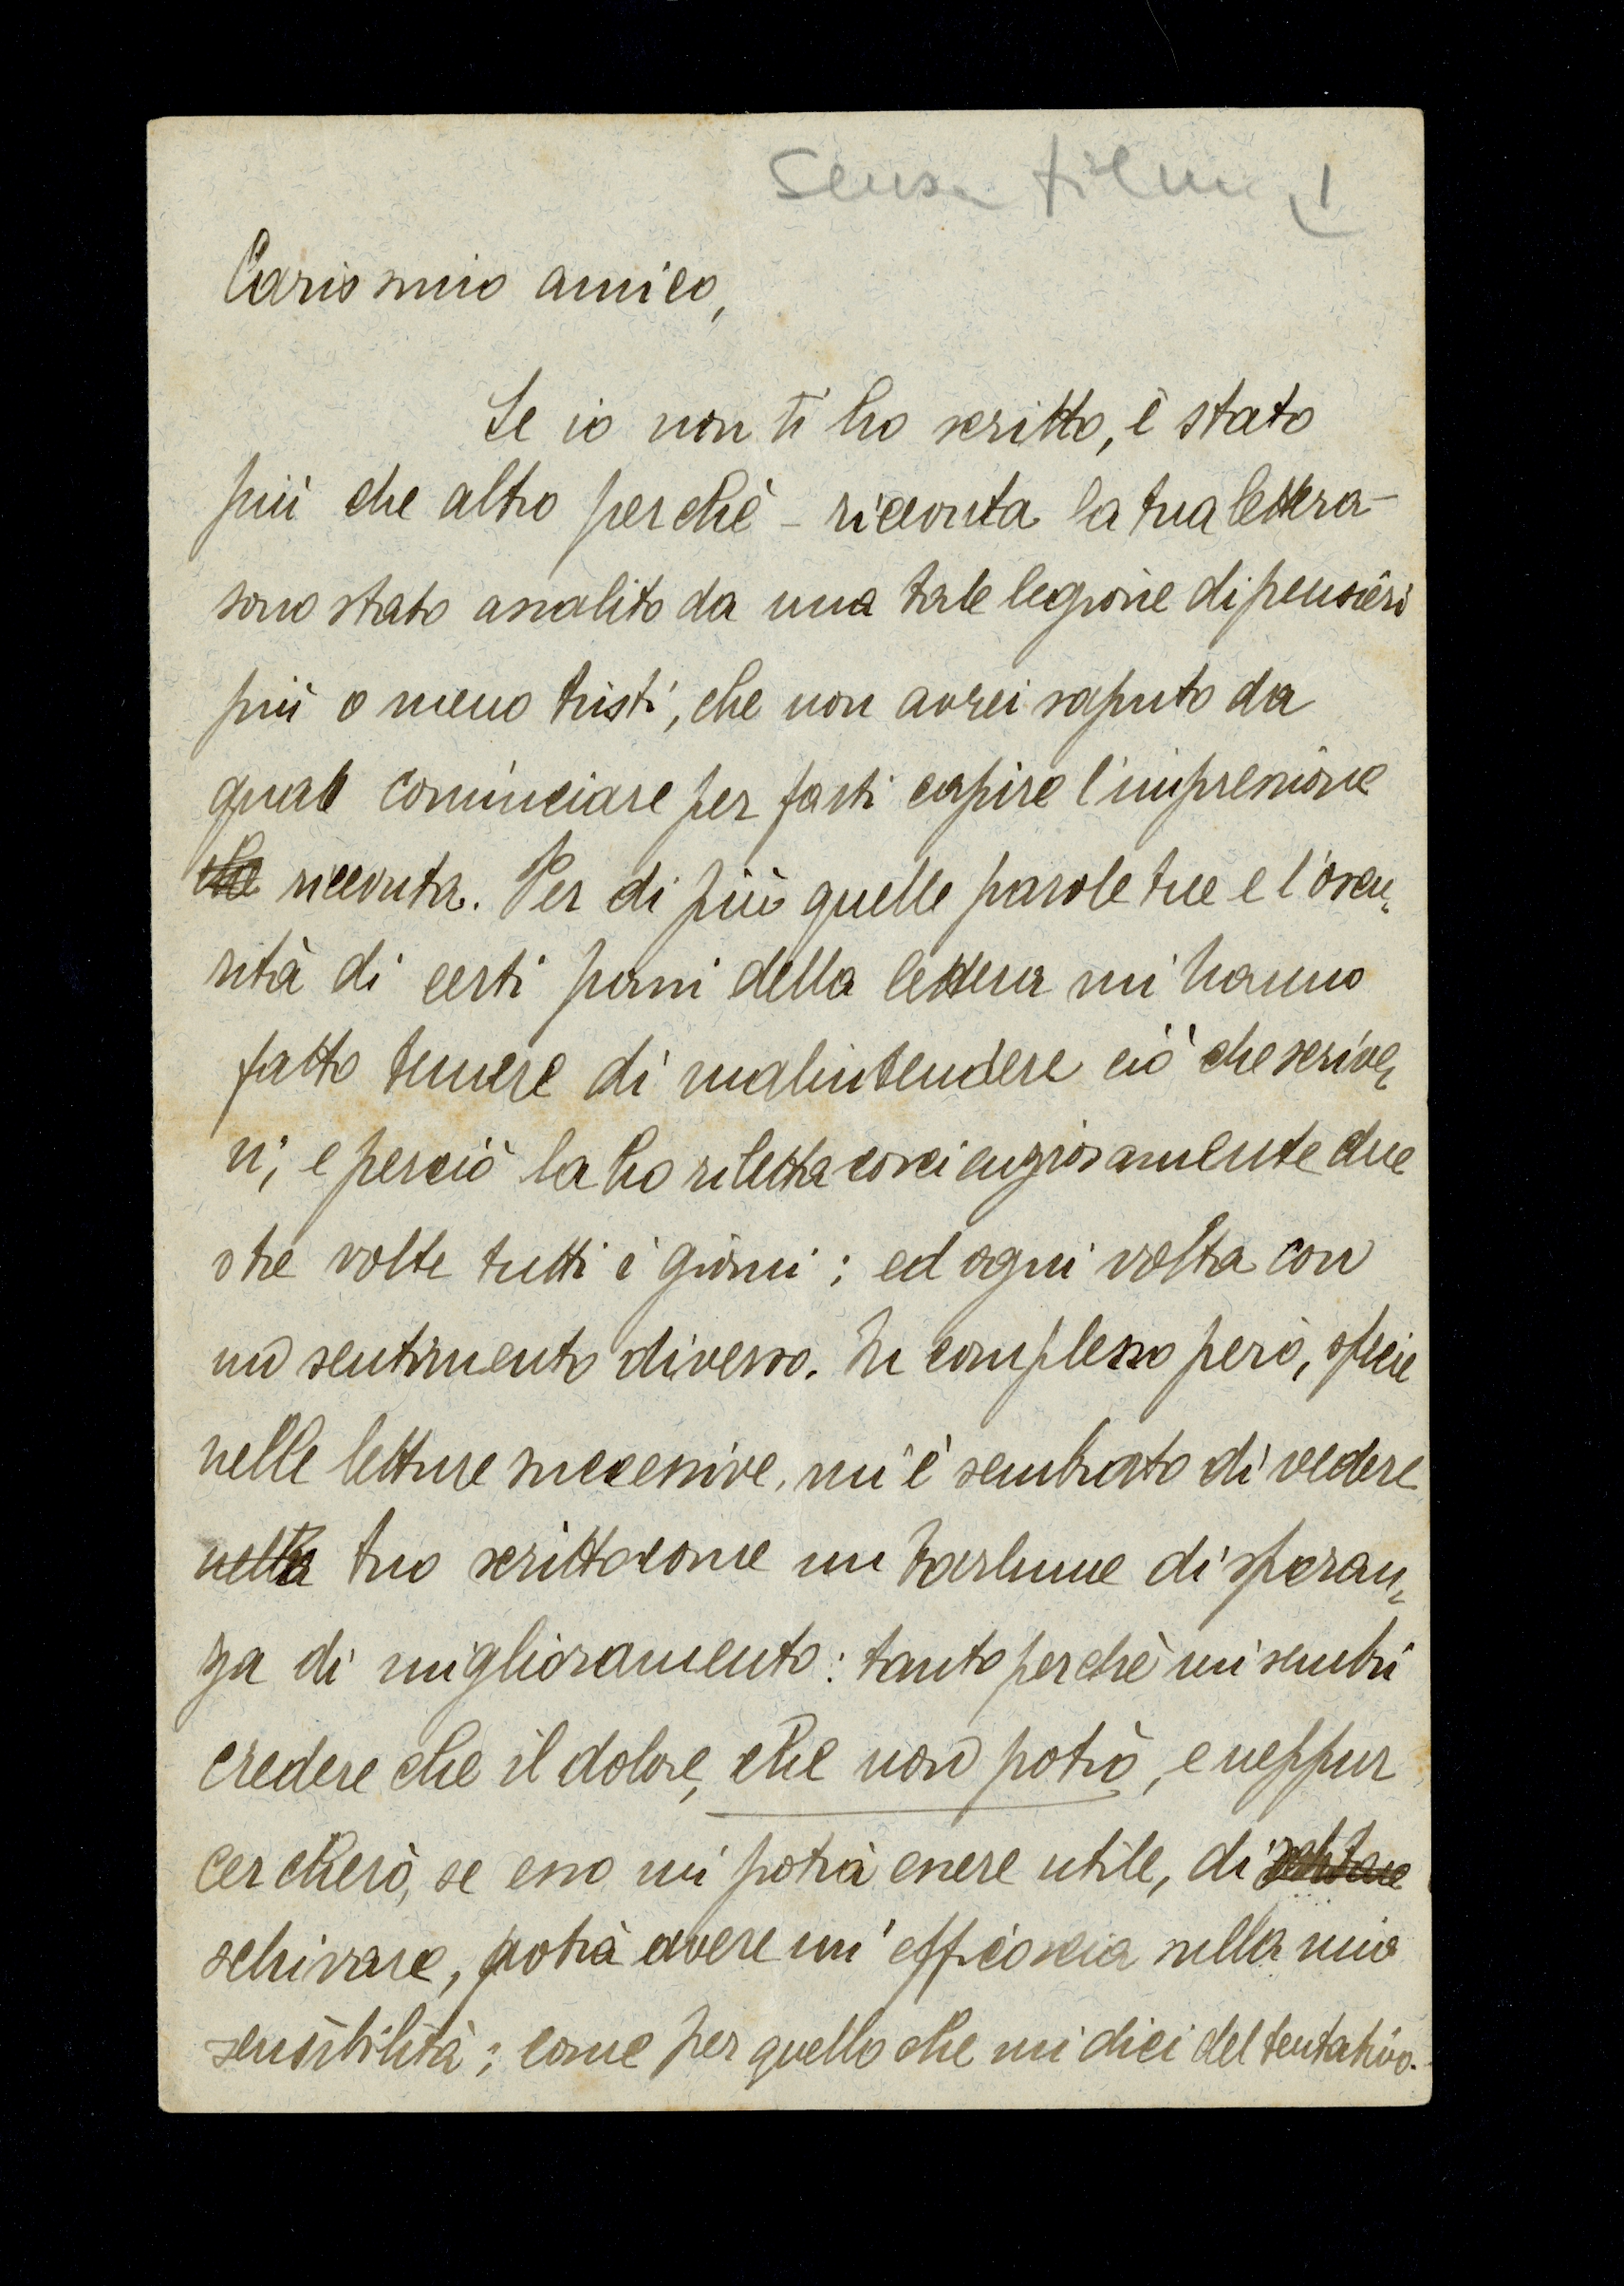 Senza film 1
Carissimo amico,
Se io non ti ho scritto, è stato
più che altro perchè - ricevuta la tua lettera -
sono stato assalito da una tale legione di pensieri
più o meno tristi, che non avrei saputo da
quale cominciare per farti capire l'impressione
che ricevuta. Per di più quelle parole tue e l'oscu-
rità di certi passi della lettera mi hanno
fatto temere di malintendere ciò che scrive-
vi; e perciò la ho riletta coscienziosamente due
o tre volte tutti i giorni; ed ogni volta con
un sentimento diverso. In complesso però, specie
nelle letture successive, mi è sembrato di vedere
nella tuo scritto come un barlume di speran-
za di miglioramento: tanto perchè mi sembri
credere che il dolore, che non potrò, e neppur
cercherò, se esso mi potrà essere utile, di
schivare, potrà avere un'efficacia sulla mia
sensibilità; come per quello che mi dici del tentativo.